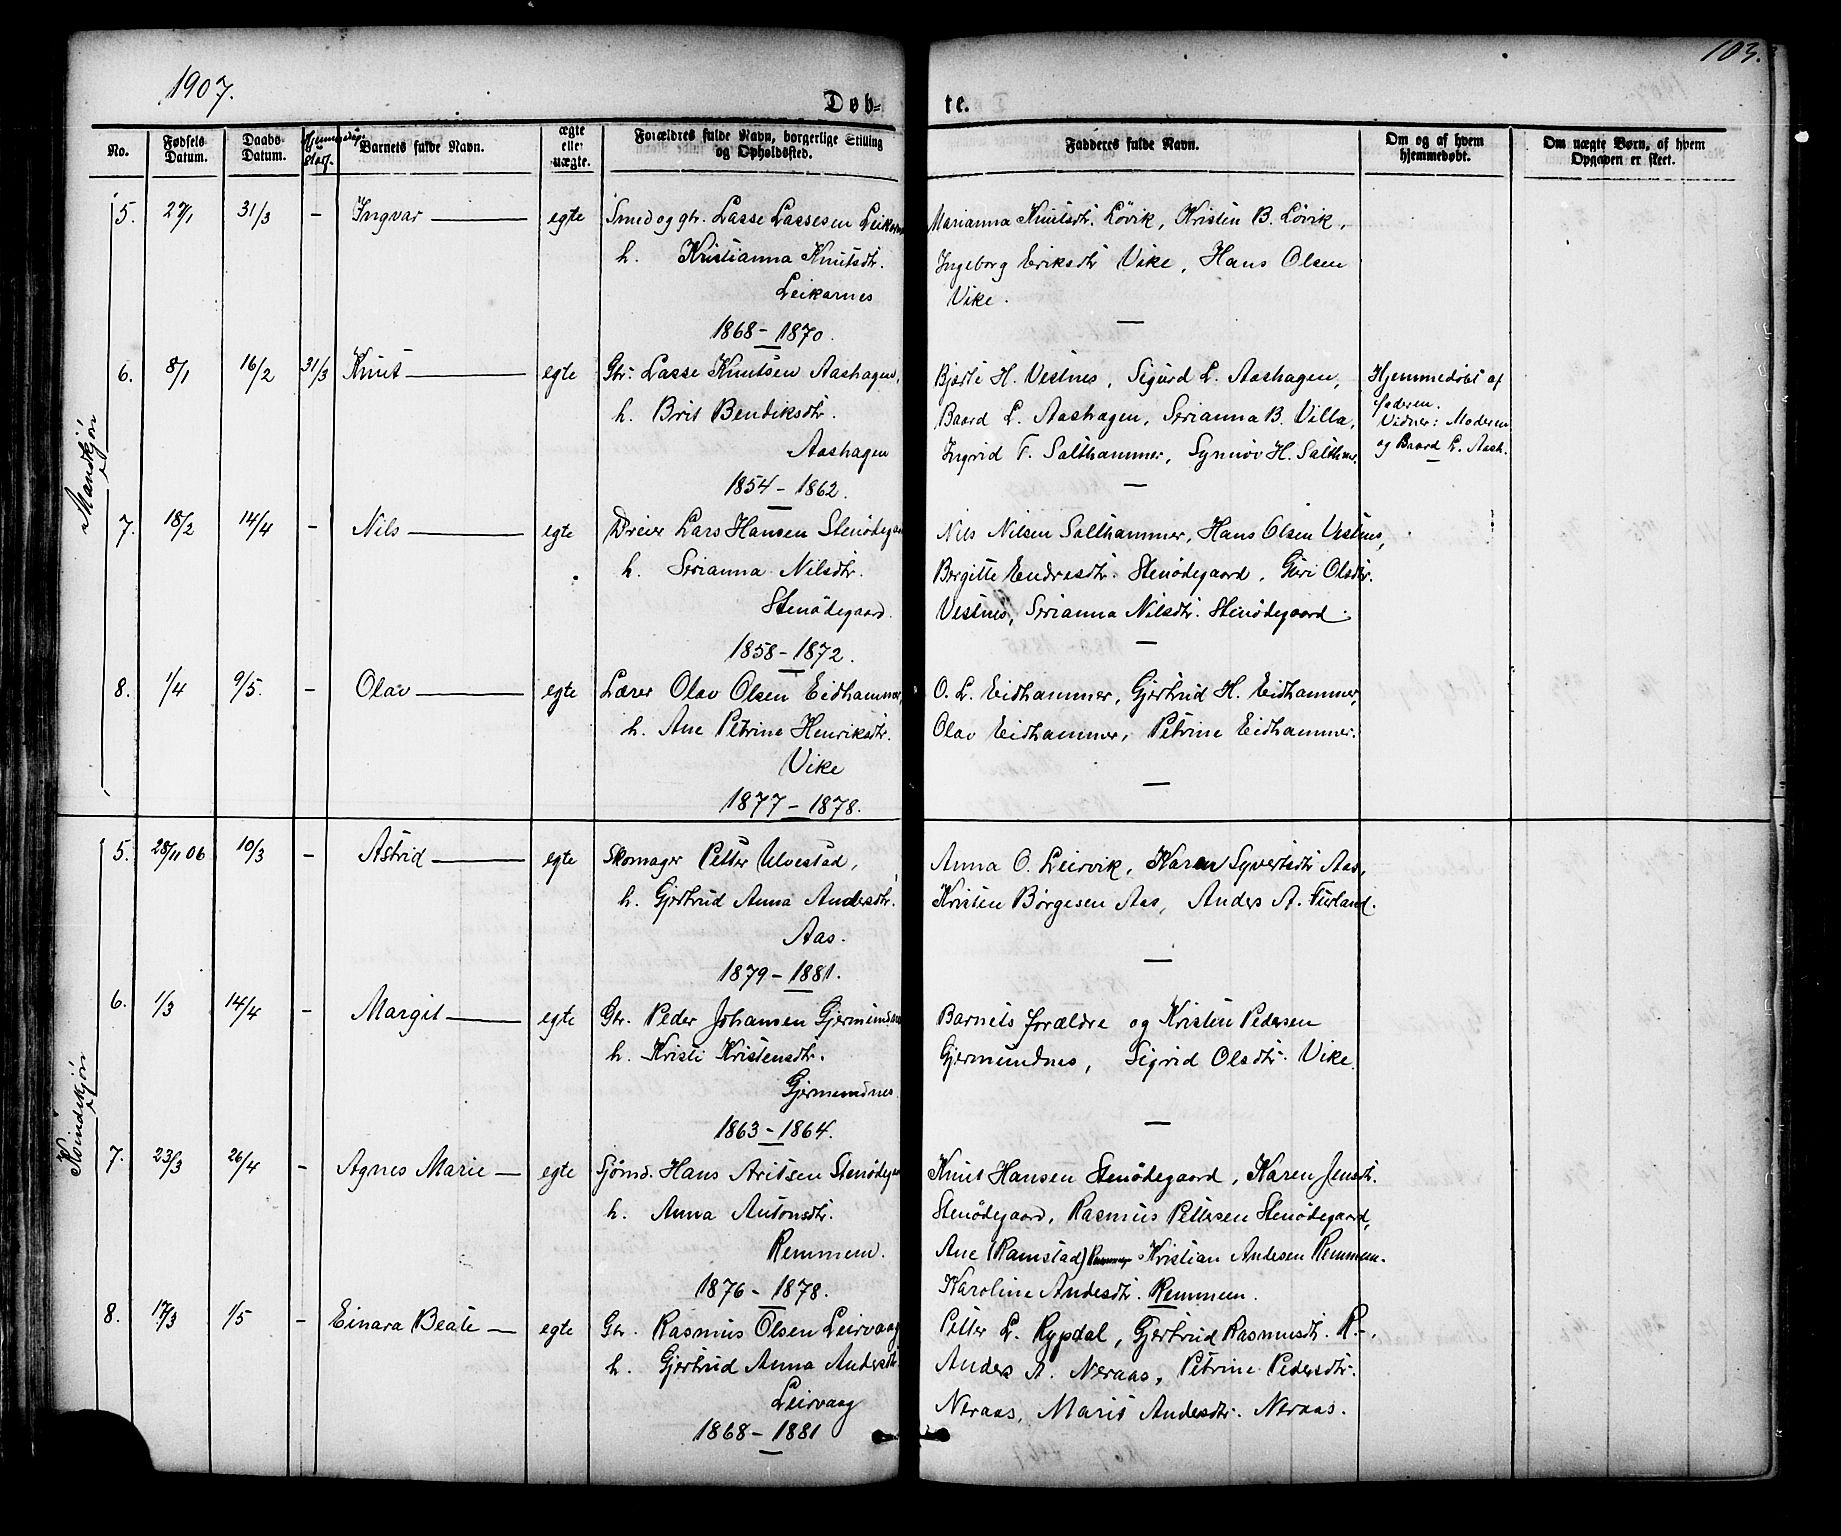 1907.
103.
Døb-
te.
No.
Fødsels Datum.
Daabs Datum.
Barnets fulde Navn.
ægte eller uægte.
Forældres fulde Navn, borgerlige Stilling og Opholdssted.
Fadderes fulde Navn.
Om og af hvem hjemmedøbt.
Om uægte Børn, af hvem Opgaven er skeet.
Mandkjøn
5. 27/1 31/3 – Ingvar egte Smed og gbr. Lasse Lassesen Leikarnes
h. Kristianna Knutsdtr.
Leikarnes
1868–1870.
Marianna Knutsdtr. Løvik, Kristen B. Løvik,
Ingeborg Eriksdtr Vike, Hans Olsen
Vike.
6. 8/1 16/2 31/3 Knut egte Gbr. Lasse Knutsen Aashagen,
h. Brit Bendiksdtr.
Aashagen
1854–1862.
Bjarte H. Vestnes, Sigurd L. Aashagen,
Baard L. Aashagen, Serianna B. Villa,
Ingrid T. Salthammer, Synnøv H. Salthmr.
Hjemmedøbt af
faderen.
Vidner: Moderen
og Baard L. Aash.
7. 18/2 14/4 – Nils egte Dreier Lars Hansen Stenødegaar
h. Serianna Nilsdtr.
Stenødegaard.
1858–1872.
Nils Nilsen Salthammer, Hans Olsen Vestnes,
Bergitte Endresdtr. Stenødegaard, Guri Olsdtr.
Vestnes, Serianna Nilsdtr. Stenødegaard.
8. 1/4 9/5. – Olav egte Lærer Olav Olsen Eidhammer,
h. Ane Petrine Henriksdtr.
Vike
1877–1878.
O. L. Eidhammer, Gjertrud H. Eidhammer,
Olav Eidhammer, Petrine Eidhammer.
Kvindekjøn
5. 28/11 06 10/3 – Astrid egte Skomager Petter Ulvestad,
h. Gjertrud Anna Andersdtr.
Aas.
1879–1881.
Anna O. Leirvik, Karen Syvertsdtr Aas,
Kristen Børgesen Aas, Anders A. Furland.
6. 1/3 14/4 – Margit egte Gbr. Peder Johansen Gjermundnes
h. Kristi Kristensdtr.
Gjermundnes
1863–1864.
Barnets forældre og Kristen Pedersen
Gjermundnes, Sigrid Olsdtr. Vike.
7. 23/3 26/4 – Agnes Marie egte Sjømd. Hans Aritsen Stenødegaa
h. Anna Antonsdtr.
Remmem.
1876–1878.
Knut Hansen Stenødegaard, Karen Jensdtr.
Stenødegaard, Rasmus Pettersen Stenødegaard,
Ane (Ramstad) Kristian Andesen Remmem.
Karoline Andesdtr. Remmem.
8. 17/3 1/5 – Einara Beate egte Gbr. Rasmus Olsen Leirvaag
h. Gjertrud Anna Andersdtr.
Leirvaag
1868–1881
Petter L. Rypdal, Gjertrud Rasmusdtr. R–,
Anders A. Neraas, Petrine Pedersdtr.
Neraas, Marit Andesdtr. Neraas.